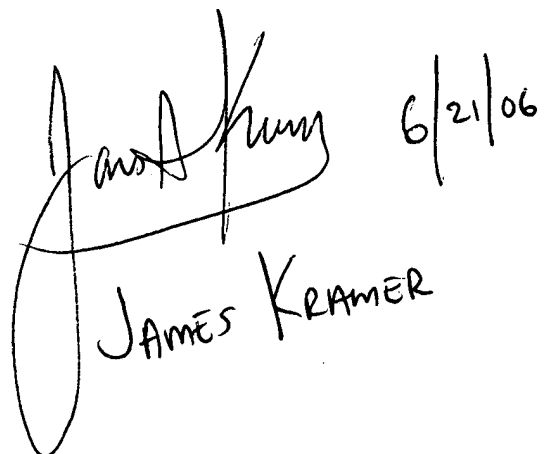 6/21/06
JAMES KRAMER